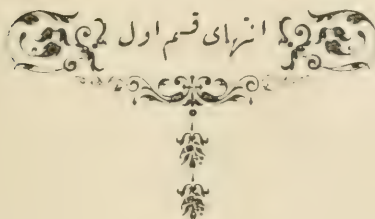 انتهای قسم اول